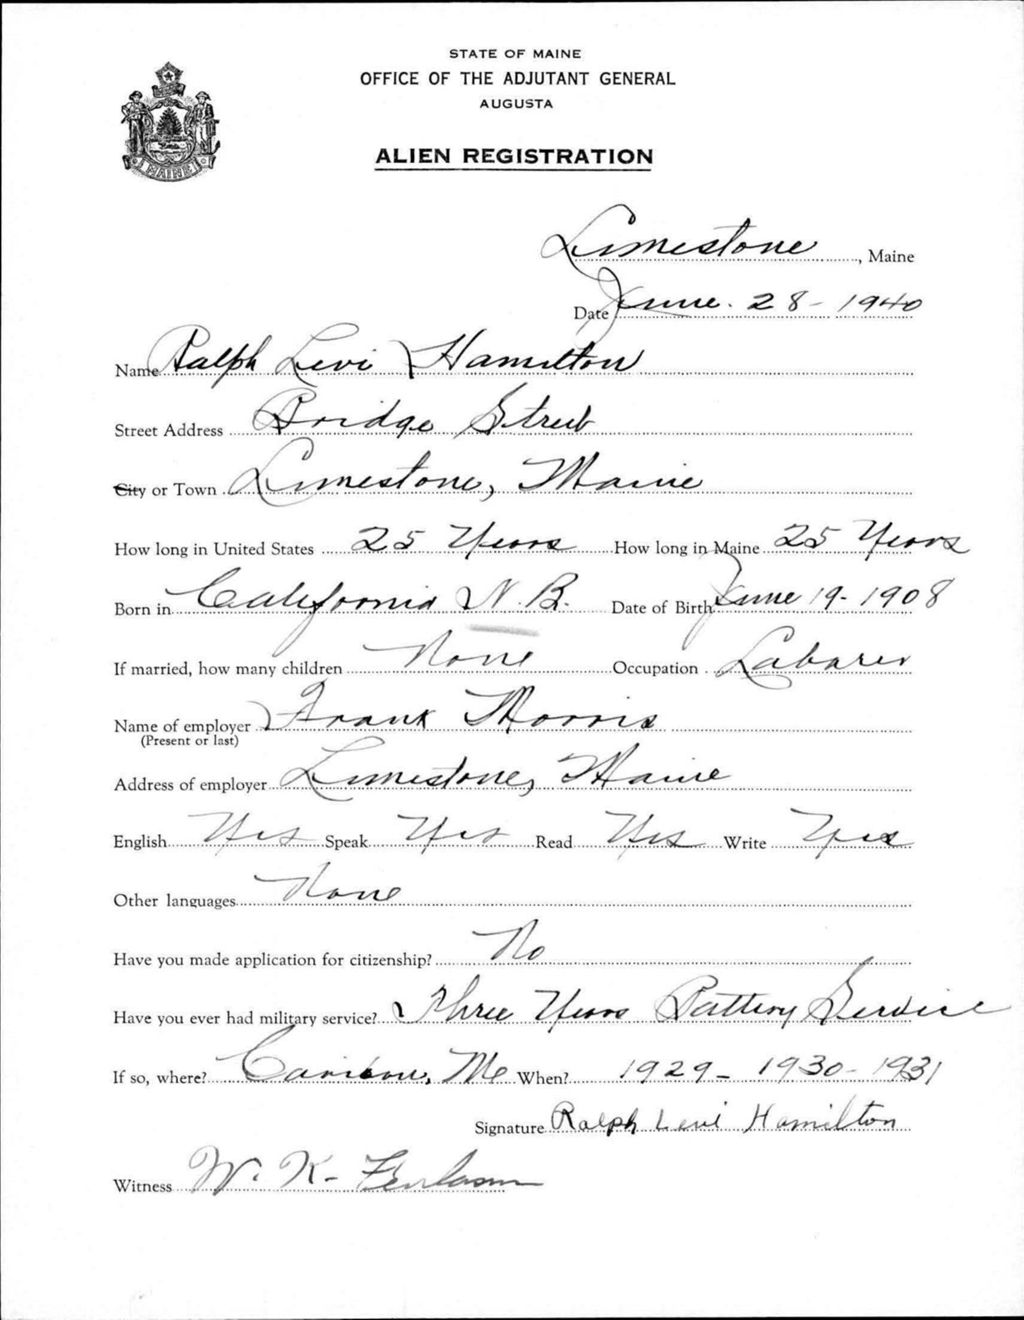 STATE OF MAINE
OFFICE OF THE ADJUTANT GENERAL
AUGUSTA
MAINE
ALIEN REGISTRATION
Limestone, Maine
Date June 28 - 1940
Name Ralph Levi Hamilton
Street Address Bridge Street
City or Town Limestone, Maine
How long in United States 25 Years How long in Maine 25 Years
Born in California N. B. Date of Birth June 19 - 1908
If married, how many children None Occupation Labarer
Name of employer Frank Morris
(Present or last)
Address of employer Limestone, Maine
English Yes Speak Yes Read Yes Write Yes
Other languages None
Have you made application for citizenship? No
Have you ever had military service? Three Years Battery Service
If so, where? Caribou, Me When? 1929 - 1930 - 1931
Signature Ralph Levi Hamilton
Witness W. K.